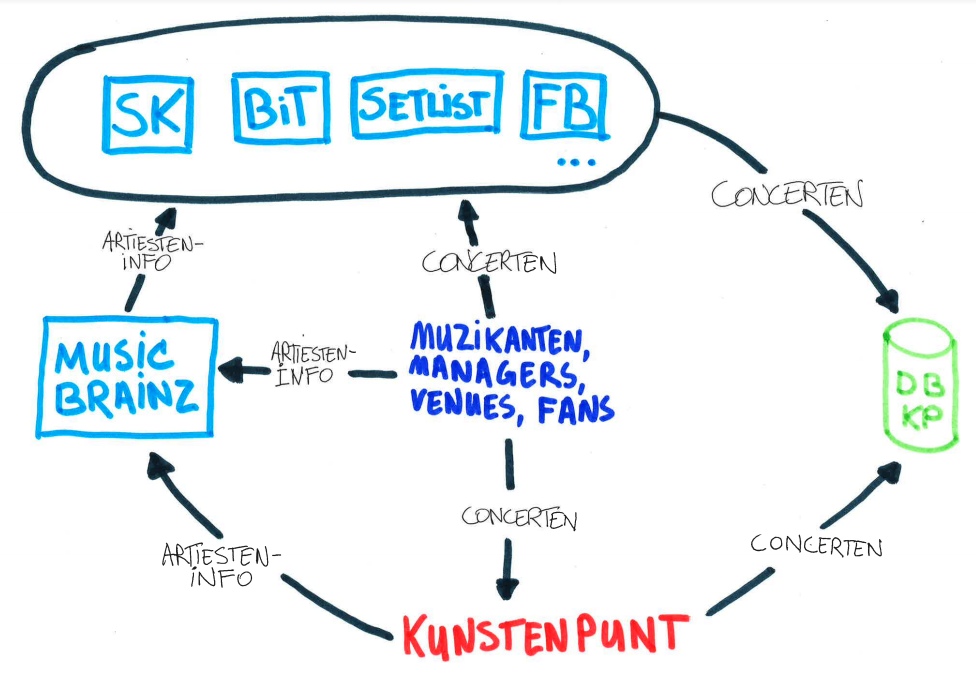 SK
BiT
SETLiST
FB
...
CONCERTEN
ARTIESTEN-
iNFO
CONCERTEN
MUSiC
BRAiNZ
ARTIESTEN-
INFO
MUZiKANTEN,
MANAGERS,
VENUES, FANS
DB
KP
CONCERTEN
ARTIESTEN-
iNFO
CONCERTEN
KUNSTENPUNT